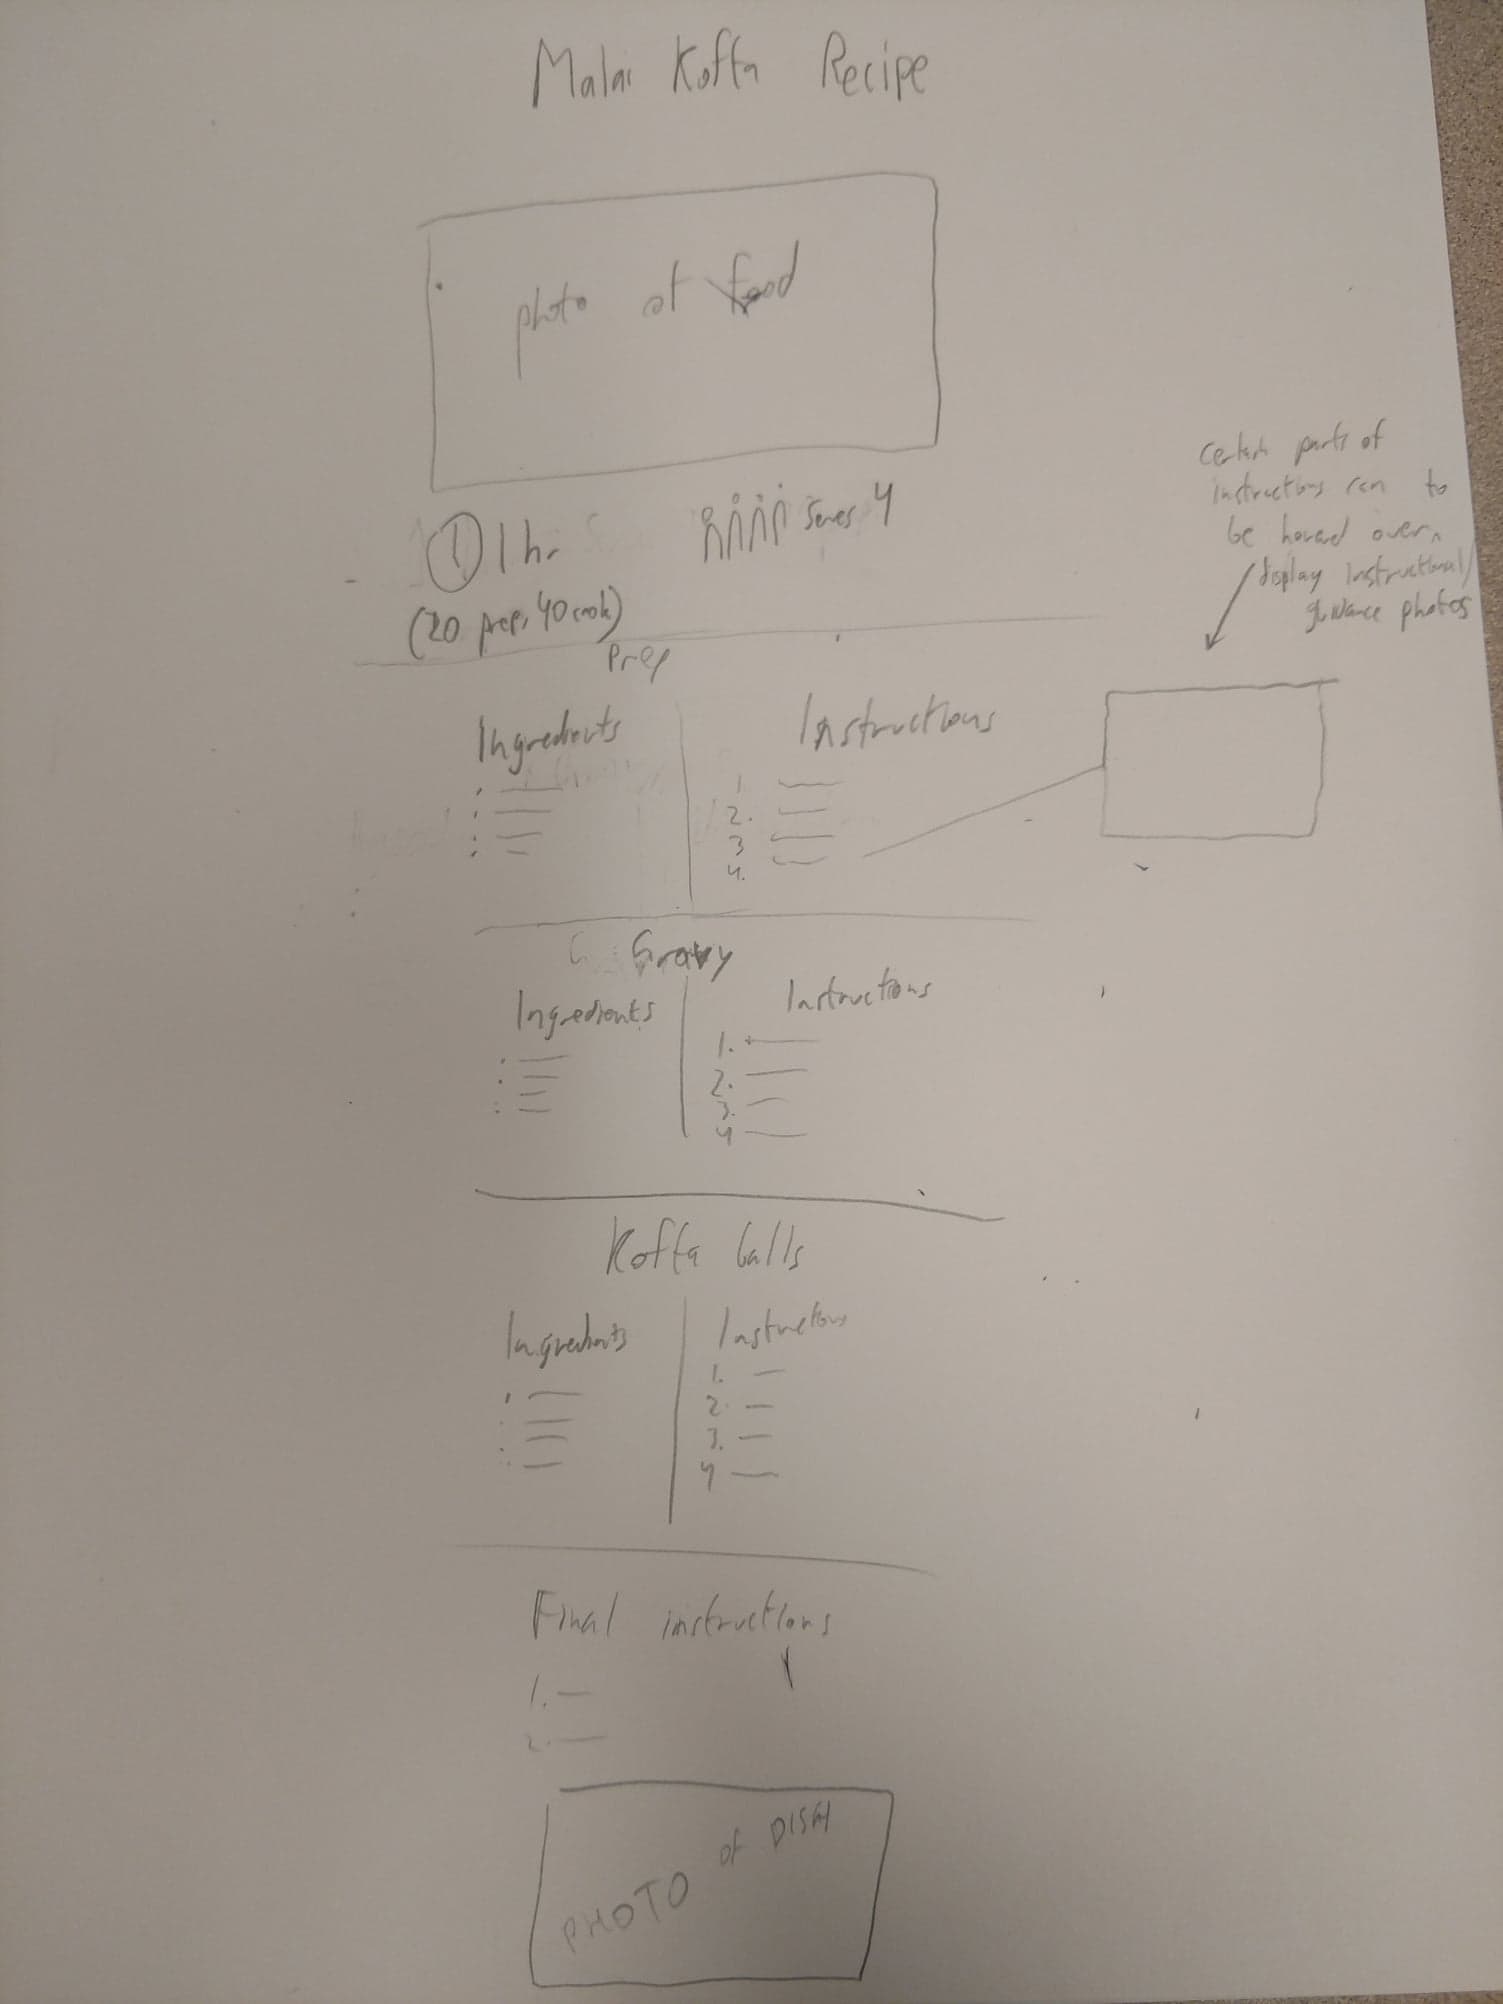 Malai Kofta Recipe
photo of food
1 hr
serves 4
(20 prep, 40 cook)
Certain parts of
instructions can
be hovered over to
display instructional/
guidance photos
Prep
Ingredients
Instructions
1
2.
3
4.
Gravy
Ingredients
Instructions
1.
2.
3.
4
Kofta balls
Ingredients
Instructions
1.
2.
3.
4
Final instructions
1.
2.
PHOTO of DISH